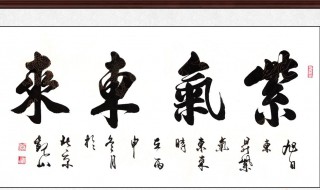 紫氣東來
旭日
東
昇紫
氣
東来
時
在丙
申
冬月
於
北京